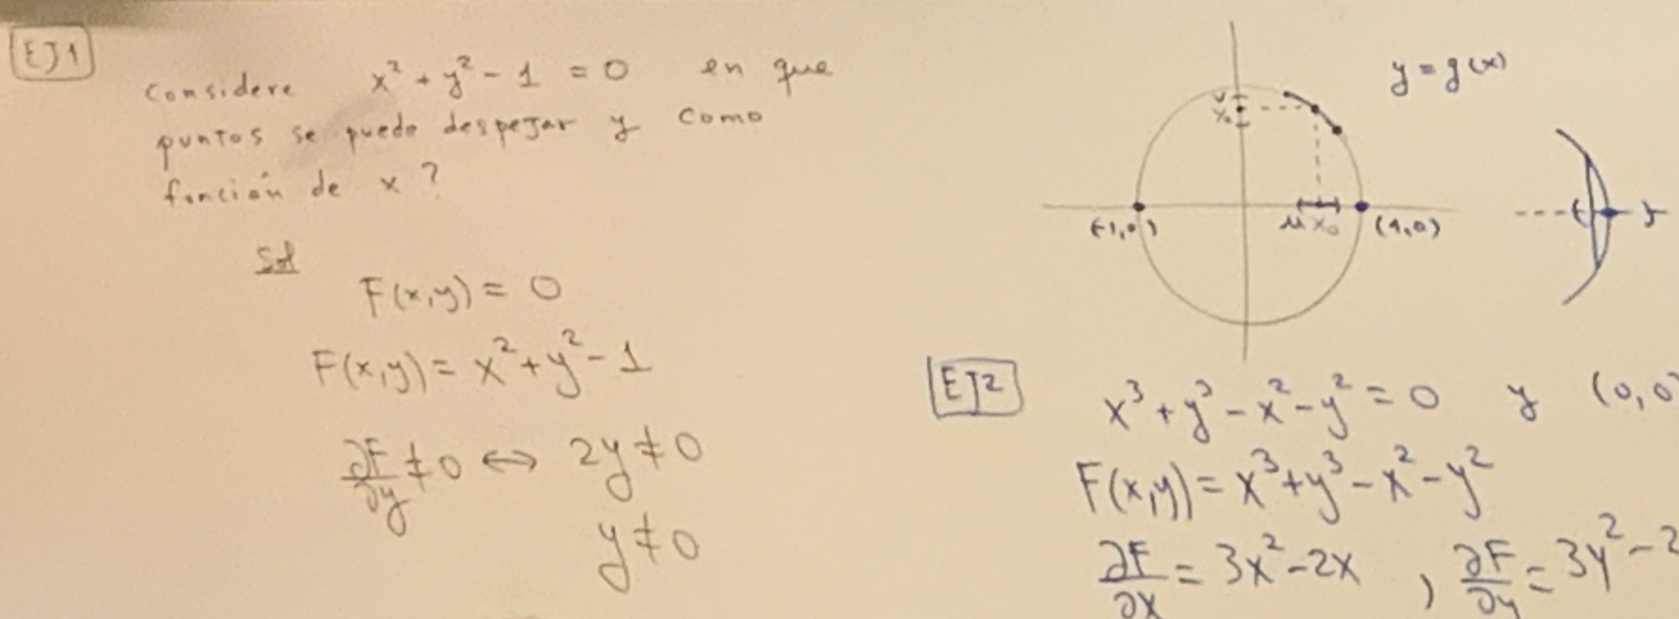 EJ1
Considere x² + y² - 1 = 0 en que
puntos se puede despejar y como
función de x ?
Sol
F(x,y) = 0
F(x,y) = x² + y² - 1
∂F/∂y ≠ 0 ↔ 2y ≠ 0
y ≠ 0
y = g(x)
(-1,0)
x₀
(1,0)
EJ2
x³ + y³ - x² - y² = 0 y (0,0
F(x,y) = x³ + y³ - x² - y²
∂F/∂x = 3x² - 2x , ∂F/∂y = 3y² - 2